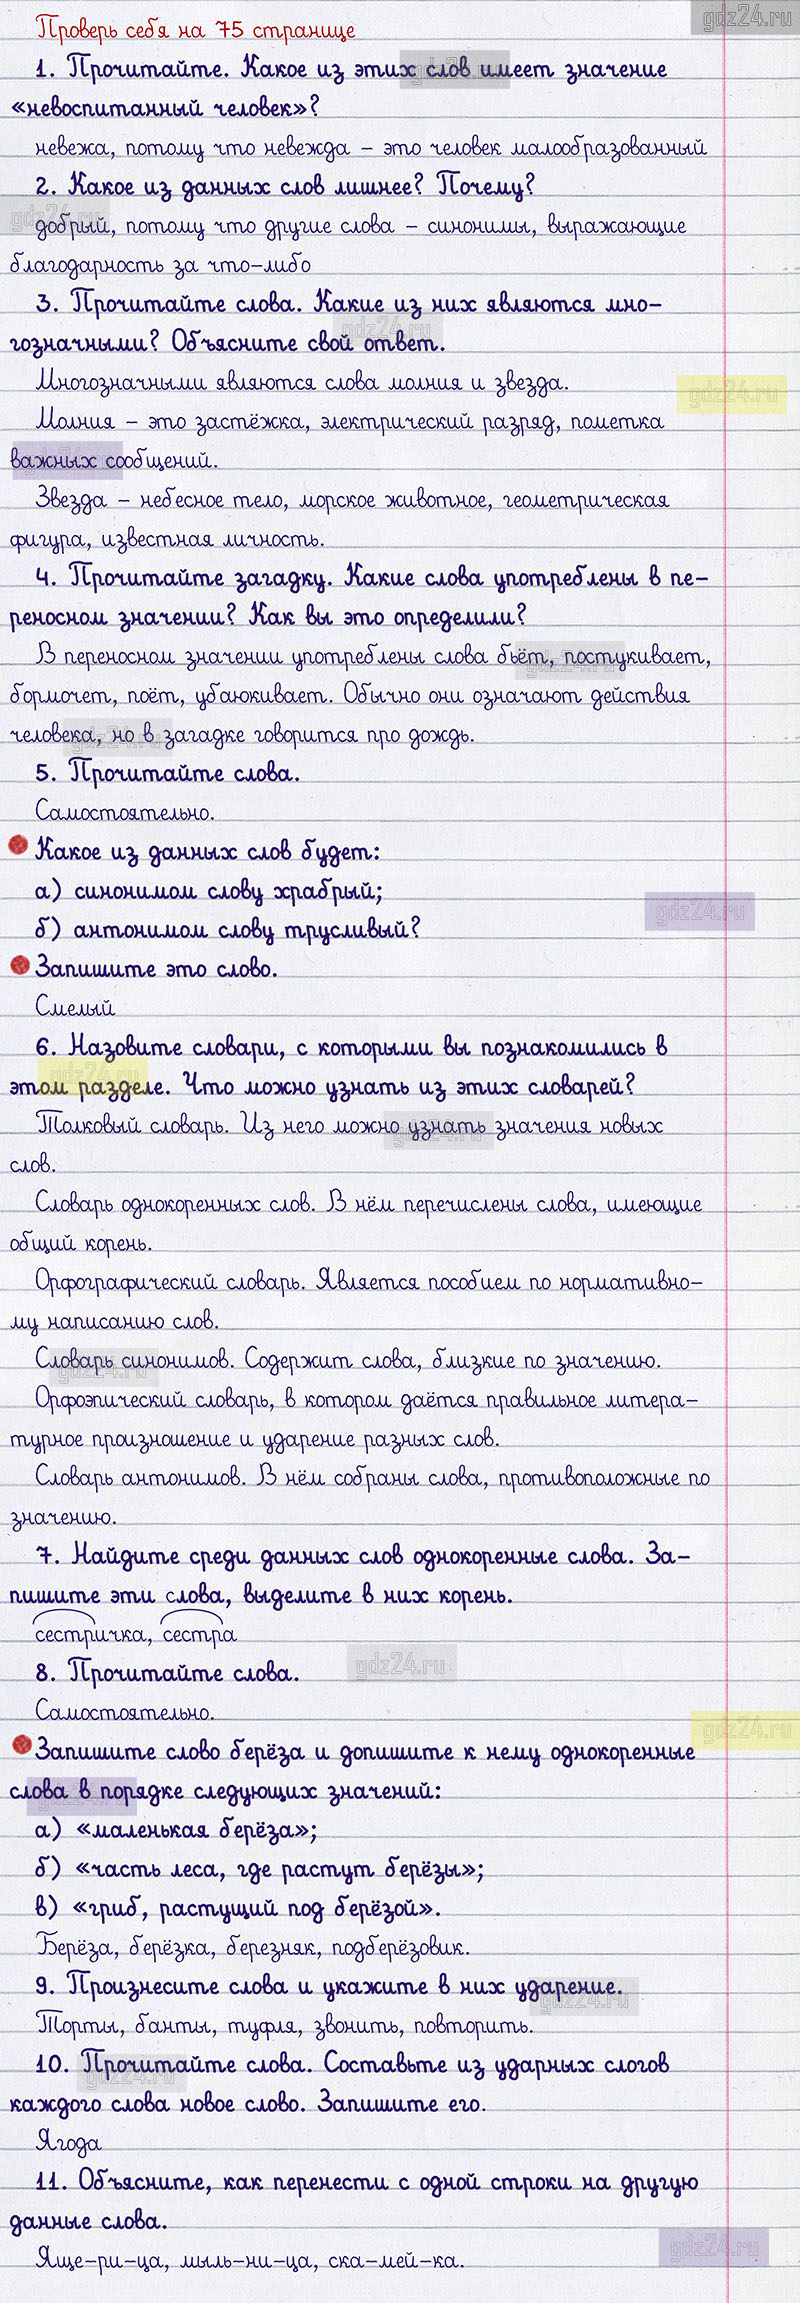 gdz24.ru
Проверь себя на 75 странице
1. Прочитайте. Какое из этих слов имеет значение
«невоспитанный человек»?
невежа, потому что невежда – это человек малообразованный
2. Какое из данных слов лишнее? Почему?
добрый, потому что другие слова – синонимы, выражающие
благодарность за что-либо
3. Прочитайте слова. Какие из них являются мно-
гозначными? Объясните свой ответ.
Многозначными являются слова молния и звезда.
Молния – это застёжка, электрический разряд, пометка
важных сообщений.
Звезда – небесное тело, морское животное, геометрическая
фигура, известная личность.
4. Прочитайте загадку. Какие слова употреблены в пе-
реносном значении? Как вы это определили?
В переносном значении употреблены слова бьёт, постукивает,
бормочет, поёт, убаюкивает. Обычно они означают действия
человека, но в загадке говорится про дождь.
5. Прочитайте слова.
Самостоятельно.
Какое из данных слов будет:
а) синонимом слову храбрый;
б) антонимом слову трусливый?
Запишите это слово.
Смелый
6. Назовите словари, с которыми вы познакомились в
этом разделе. Что можно узнать из этих словарей?
Толковый словарь. Из него можно узнать значения новых
слов.
Словарь однокоренных слов. В нём перечислены слова, имеющие
общий корень.
Орфографический словарь. Является пособием по нормативно-
му написанию слов.
Словарь синонимов. Содержит слова, близкие по значению.
Орфоэпический словарь, в котором даётся правильное литера-
турное произношение и ударение разных слов.
Словарь антонимов. В нём собраны слова, противоположные по
значению.
7. Найдите среди данных слов однокоренные слова. За-
пишите эти слова, выделите в них корень.
сестричка, сестра
8. Прочитайте слова.
Самостоятельно.
Запишите слово берёза и допишите к нему однокоренные
слова в порядке следующих значений:
а) «маленькая берёза»;
б) «часть леса, где растут берёзы»;
в) «гриб, растущий под берёзой».
Берёза, берёзка, березняк, подберёзовик.
9. Произнесите слова и укажите в них ударение.
Торты, банты, туфля, звонить, повторить.
10. Прочитайте слова. Составьте из ударных слогов
каждого слова новое слово. Запишите его.
Ягода
11. Объясните, как перенести с одной строки на другую
данные слова.
Яще-ри-ца, мыль-ни-ца, ска-мей-ка.
gdz24.ru